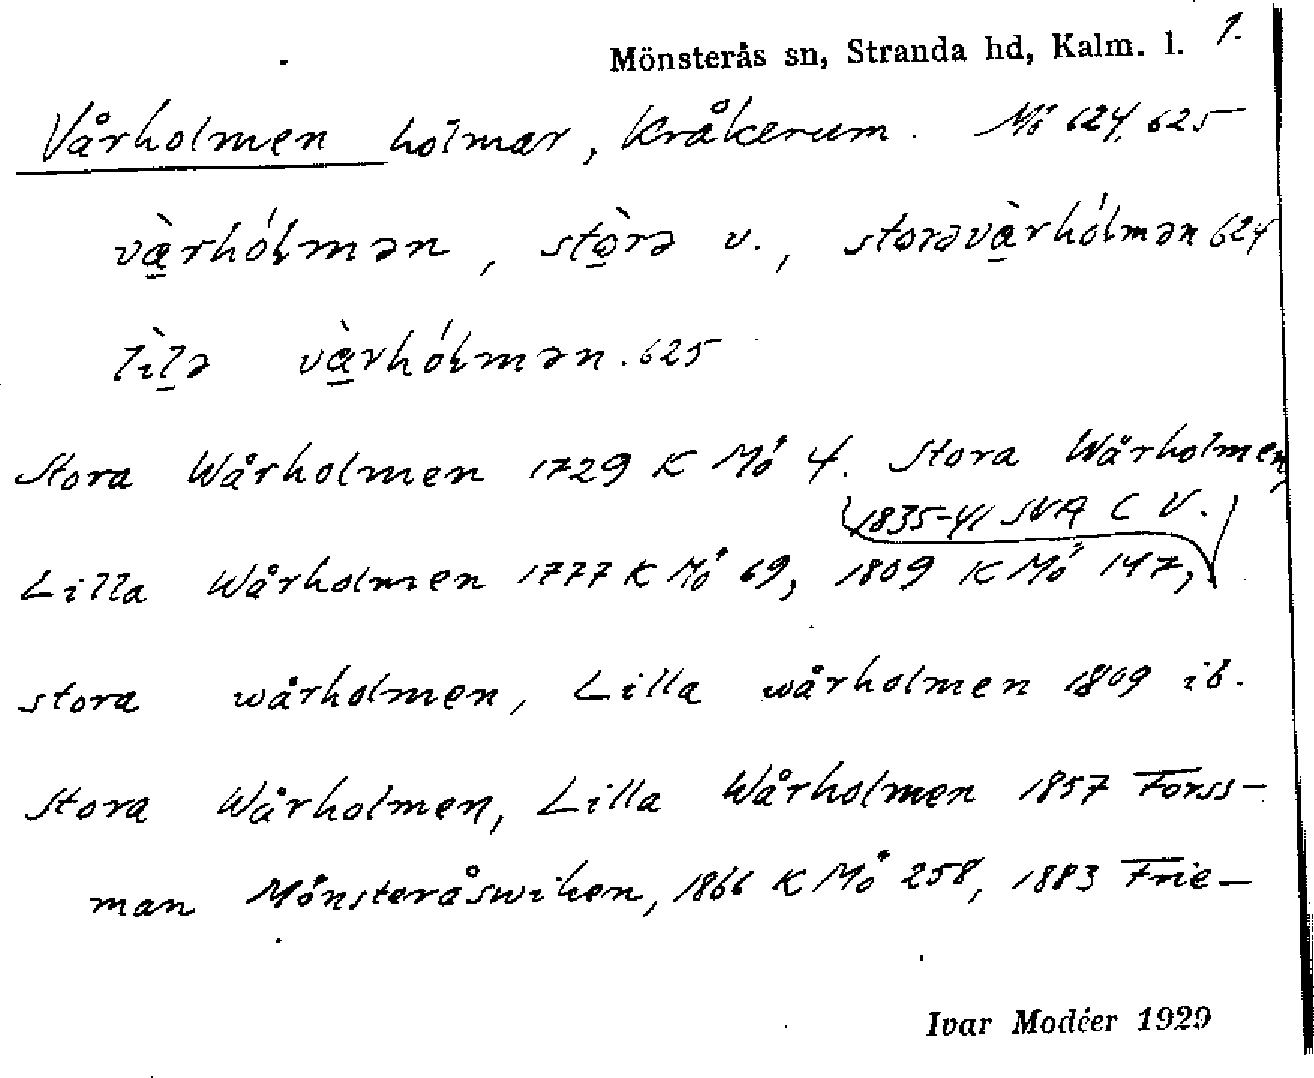 Mönsterås sn, Stranda hd, Kalm. l. 1.
Vårholmen holmar, Kråkerum. Mö 624, 625
væ̀rhólmən, stòrə v., storəvæ̀rhólmən 624
lìlə væ̀rhólmən. 625
Stora Wårholmen 1729 K Mö 4. Stora Wårholmen,
1835-41 SVA C V.
Lilla Wårholmen 1777 K Mö 69, 1809 K Mö 147,
stora wårholmen, Lilla wårholmen 1809 ib.
Stora Wårholmen, Lilla Wårholmen 1857 Forss-
man Mönsteråswiken, 1866 K Mö 258, 1883 Frie-
Ivar Modéer 1929